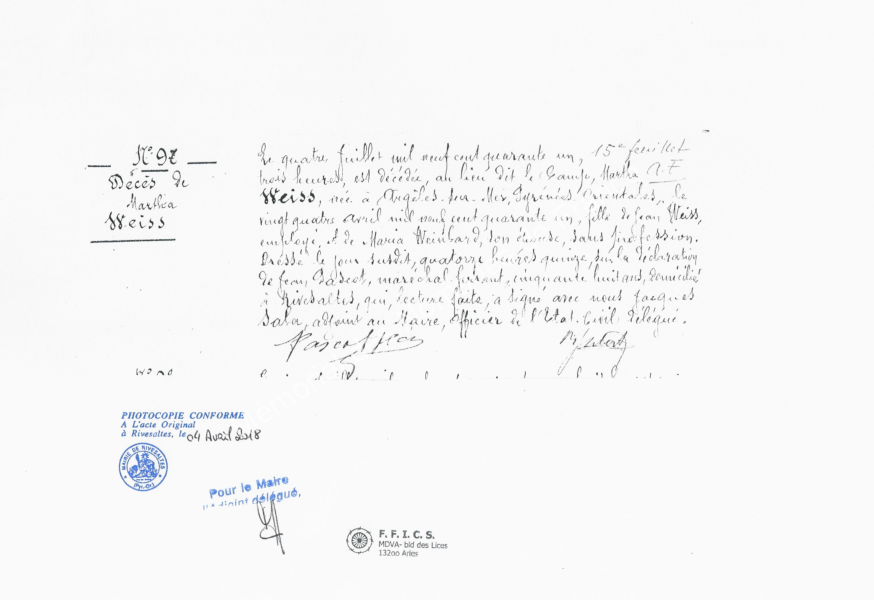 N° 97
Décès de
Marthéa
Weiss
Le quatre Juillet mil neuf cent quarante un, 15e feuillet
trois heures, est décédée, au lieu dit le Camp, Martha
Weiss, née à Argelès-sur-Mer, Pyrénées Orientales, le
vingt quatre avril mil neuf cent quarante un, fille de Jean Weiss,
employé, et de Maria Weinbard, son épouse, sans profession.
Dressé le jour susdit, quatorze heures quinze, sur la déclaration
de Jean Pascot, maréchal-ferrant, cinquante huit ans, domicilié
à Rivesaltes, qui, lecture faite, a signé avec nous Jacques
Sala, adjoint au Maire, Officier de l'Etat-Civil délégué.
Pascot Jean
PHOTOCOPIE CONFORME
A L'acte Original
à Rivesaltes, le 04 Avril 2018
MAIRIE DE RIVESALTES
(Pyr.-Or.)
Pour le Maire
l'Adjoint délégué,
F.F.I.C.S.
MDVA- bld des Lices
13200 Arles